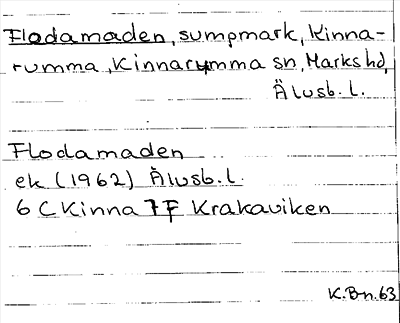 Flodamaden, sumpmark, Kinna-
rumma, Kinnarumma sn, Marks hd,
Älvsb. l.
Flodamaden
ek (1962) Älvsb. l.
6 C Kinna 7 F Krakaviken
K. Bn. 63